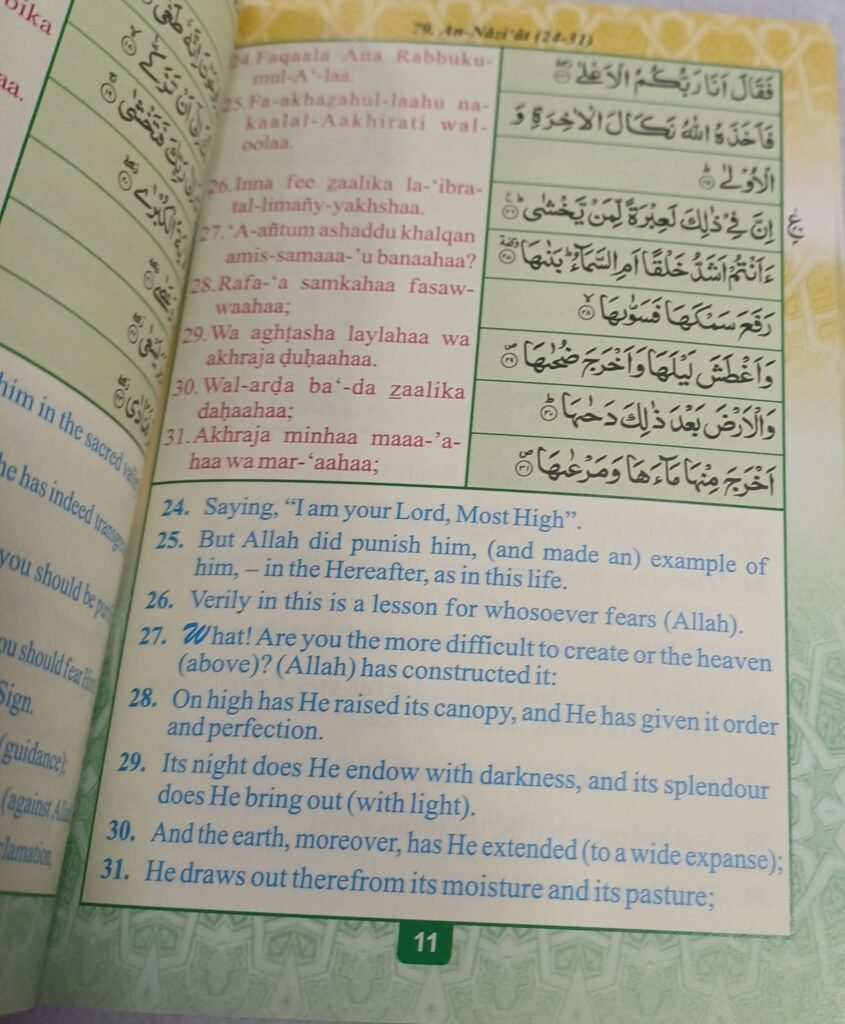 him in the sacred
he has indeed
you should be
should fear
Sign.
(guidance);
(against
79. An-Nâzi‘ât (24-31)
24. Faqaala Ana Rabbuku-
mul-A‘-laa.
25. Fa-akhazahul-laahu na-
kaalal-Aakhirati wal-
oolaa.
26. Inna fee zaalika la-‘ibra-
tal-limañy-yakhshaa.
27. ‘A-añtum ashaddu khalqan
amis-samaaa-’u banaahaa?
28. Rafa-‘a samkahaa fasaw-
waahaa;
29. Wa aghṭasha laylahaa wa
akhraja ḍuḥaahaa.
30. Wal-arḍa ba‘-da zaalika
daḥaahaa;
31. Akhraja minhaa maaa-’a-
haa wa mar-‘aahaa;
فَقَالَ اَنَا رَبُّكُمُ الْاَعْلٰى ۝٢٤
فَاَخَذَهُ اللّٰهُ نَكَالَ الْاٰخِرَةِ وَ
الْاُوْلٰى ۝٢٥
اِنَّ فِيْ ذٰلِكَ لَعِبْرَةً لِّمَنْ يَّخْشٰى ۝٢٦
ءَاَنْتُمْ اَشَدُّ خَلْقًا اَمِ السَّمَآءُ بَنٰىهَا ۝٢٧
رَفَعَ سَمْكَهَا فَسَوّٰىهَا ۝٢٨
وَاَغْطَشَ لَيْلَهَا وَاَخْرَجَ ضُحٰىهَا ۝٢٩
وَالْاَرْضَ بَعْدَ ذٰلِكَ دَحٰىهَا ۝٣٠
اَخْرَجَ مِنْهَا مَآءَهَا وَمَرْعٰىهَا ۝٣١
24. Saying, “I am your Lord, Most High”.
25. But Allah did punish him, (and made an) example of
him, – in the Hereafter, as in this life.
26. Verily in this is a lesson for whosoever fears (Allah).
27. What! Are you the more difficult to create or the heaven
(above)? (Allah) has constructed it:
28. On high has He raised its canopy, and He has given it order
and perfection.
29. Its night does He endow with darkness, and its splendour
does He bring out (with light).
30. And the earth, moreover, has He extended (to a wide expanse);
31. He draws out therefrom its moisture and its pasture;
11